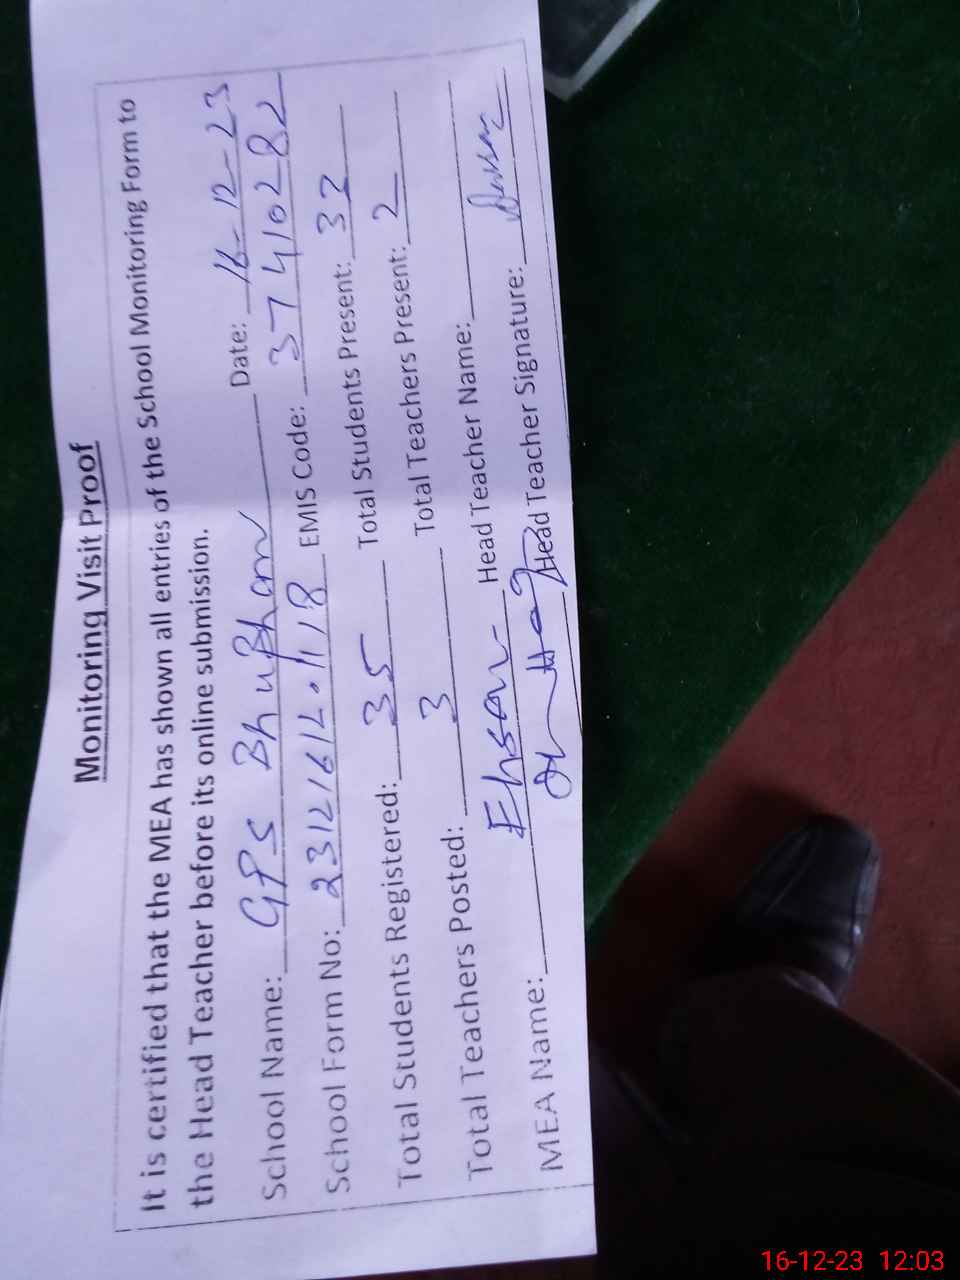 Monitoring Visit Proof
It is certified that the MEA has shown all entries of the School Monitoring Form to
the Head Teacher before its online submission.
School Name: GPS Bhu Bhan Date: 16-12-23
School Form No: EMIS Code: 37410282
Total Students Registered: 35 Total Students Present: 32
Total Teachers Posted: 3 Total Teachers Present: 2
MEA Name: Ehsan Head Teacher Name:
Ul Haq Head Teacher Signature:
16-12-23 12:03